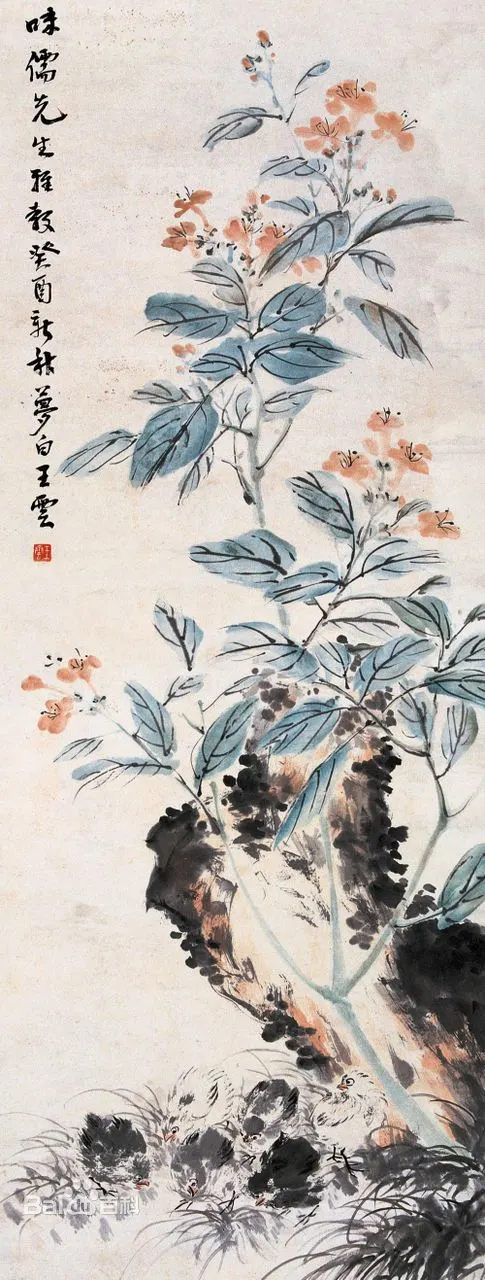 味儒先生雅教癸酉新秋夢白王雲
王雲
Baidu百科